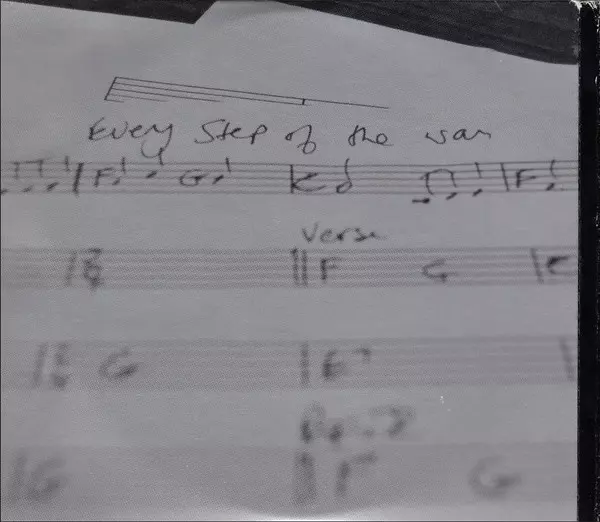 Every Step of the way
F G C F
Verse
F G C
G E7
G F G